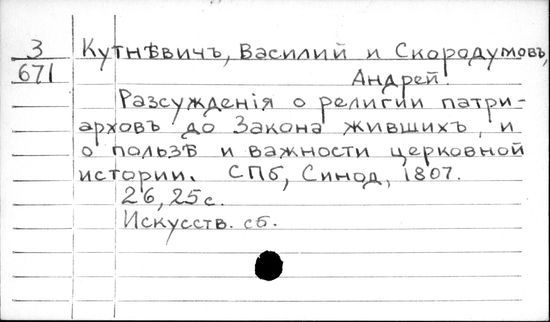 З
671
Кутнѣвичъ, Василий и Скородумовъ,
Андрей.
Разсужденiя о религии патри-
арховъ до Закона живших, и
о пользѣ и важности церковной
истории. СПб, Синод, 1807.
26, 25 с.
Искусств. сб.